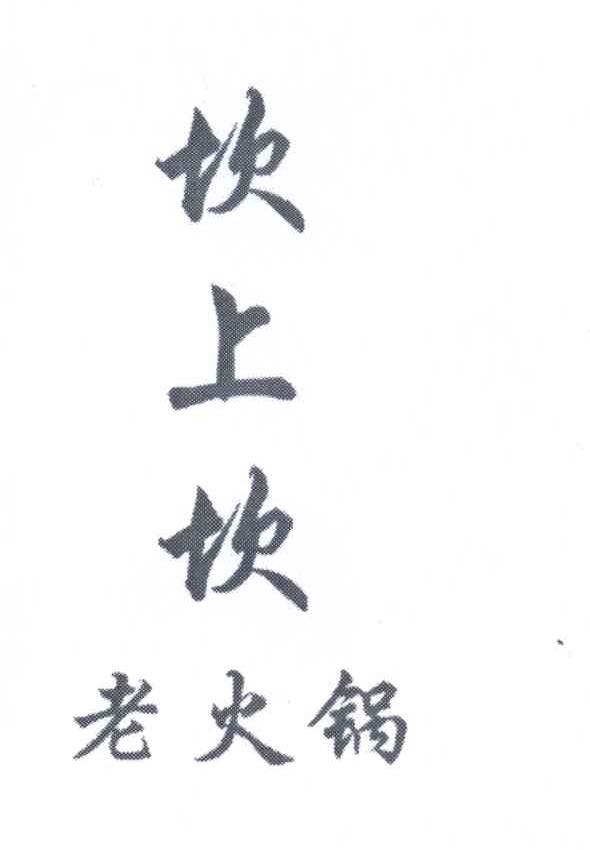 坎上坎
老火锅